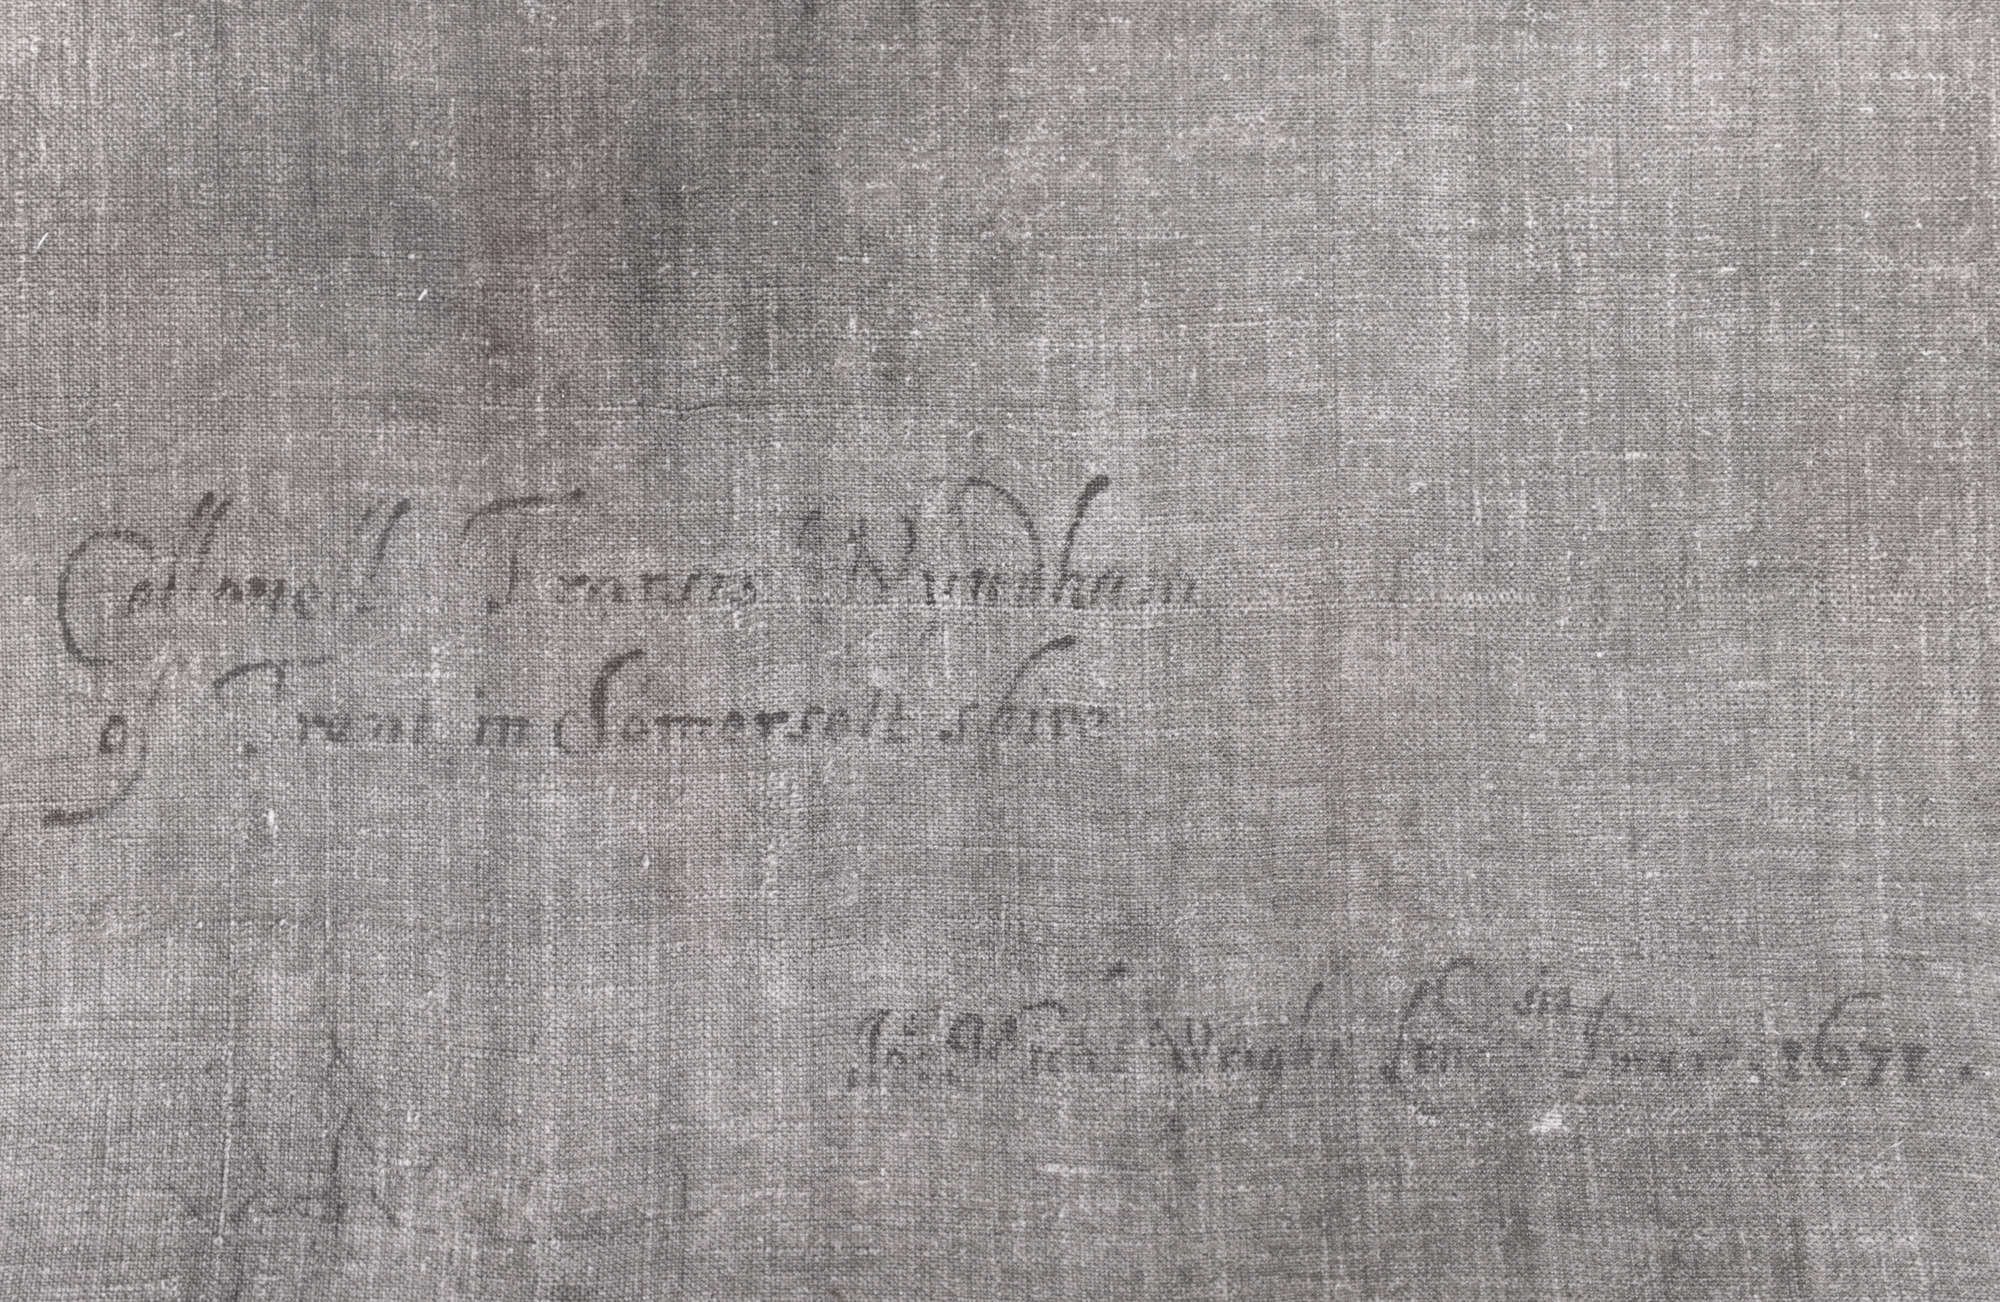 Collonell Francis Wyndham
of Trent in Somersett shire
Jos: Mich: Wright Lond:ni pinxit 1671.